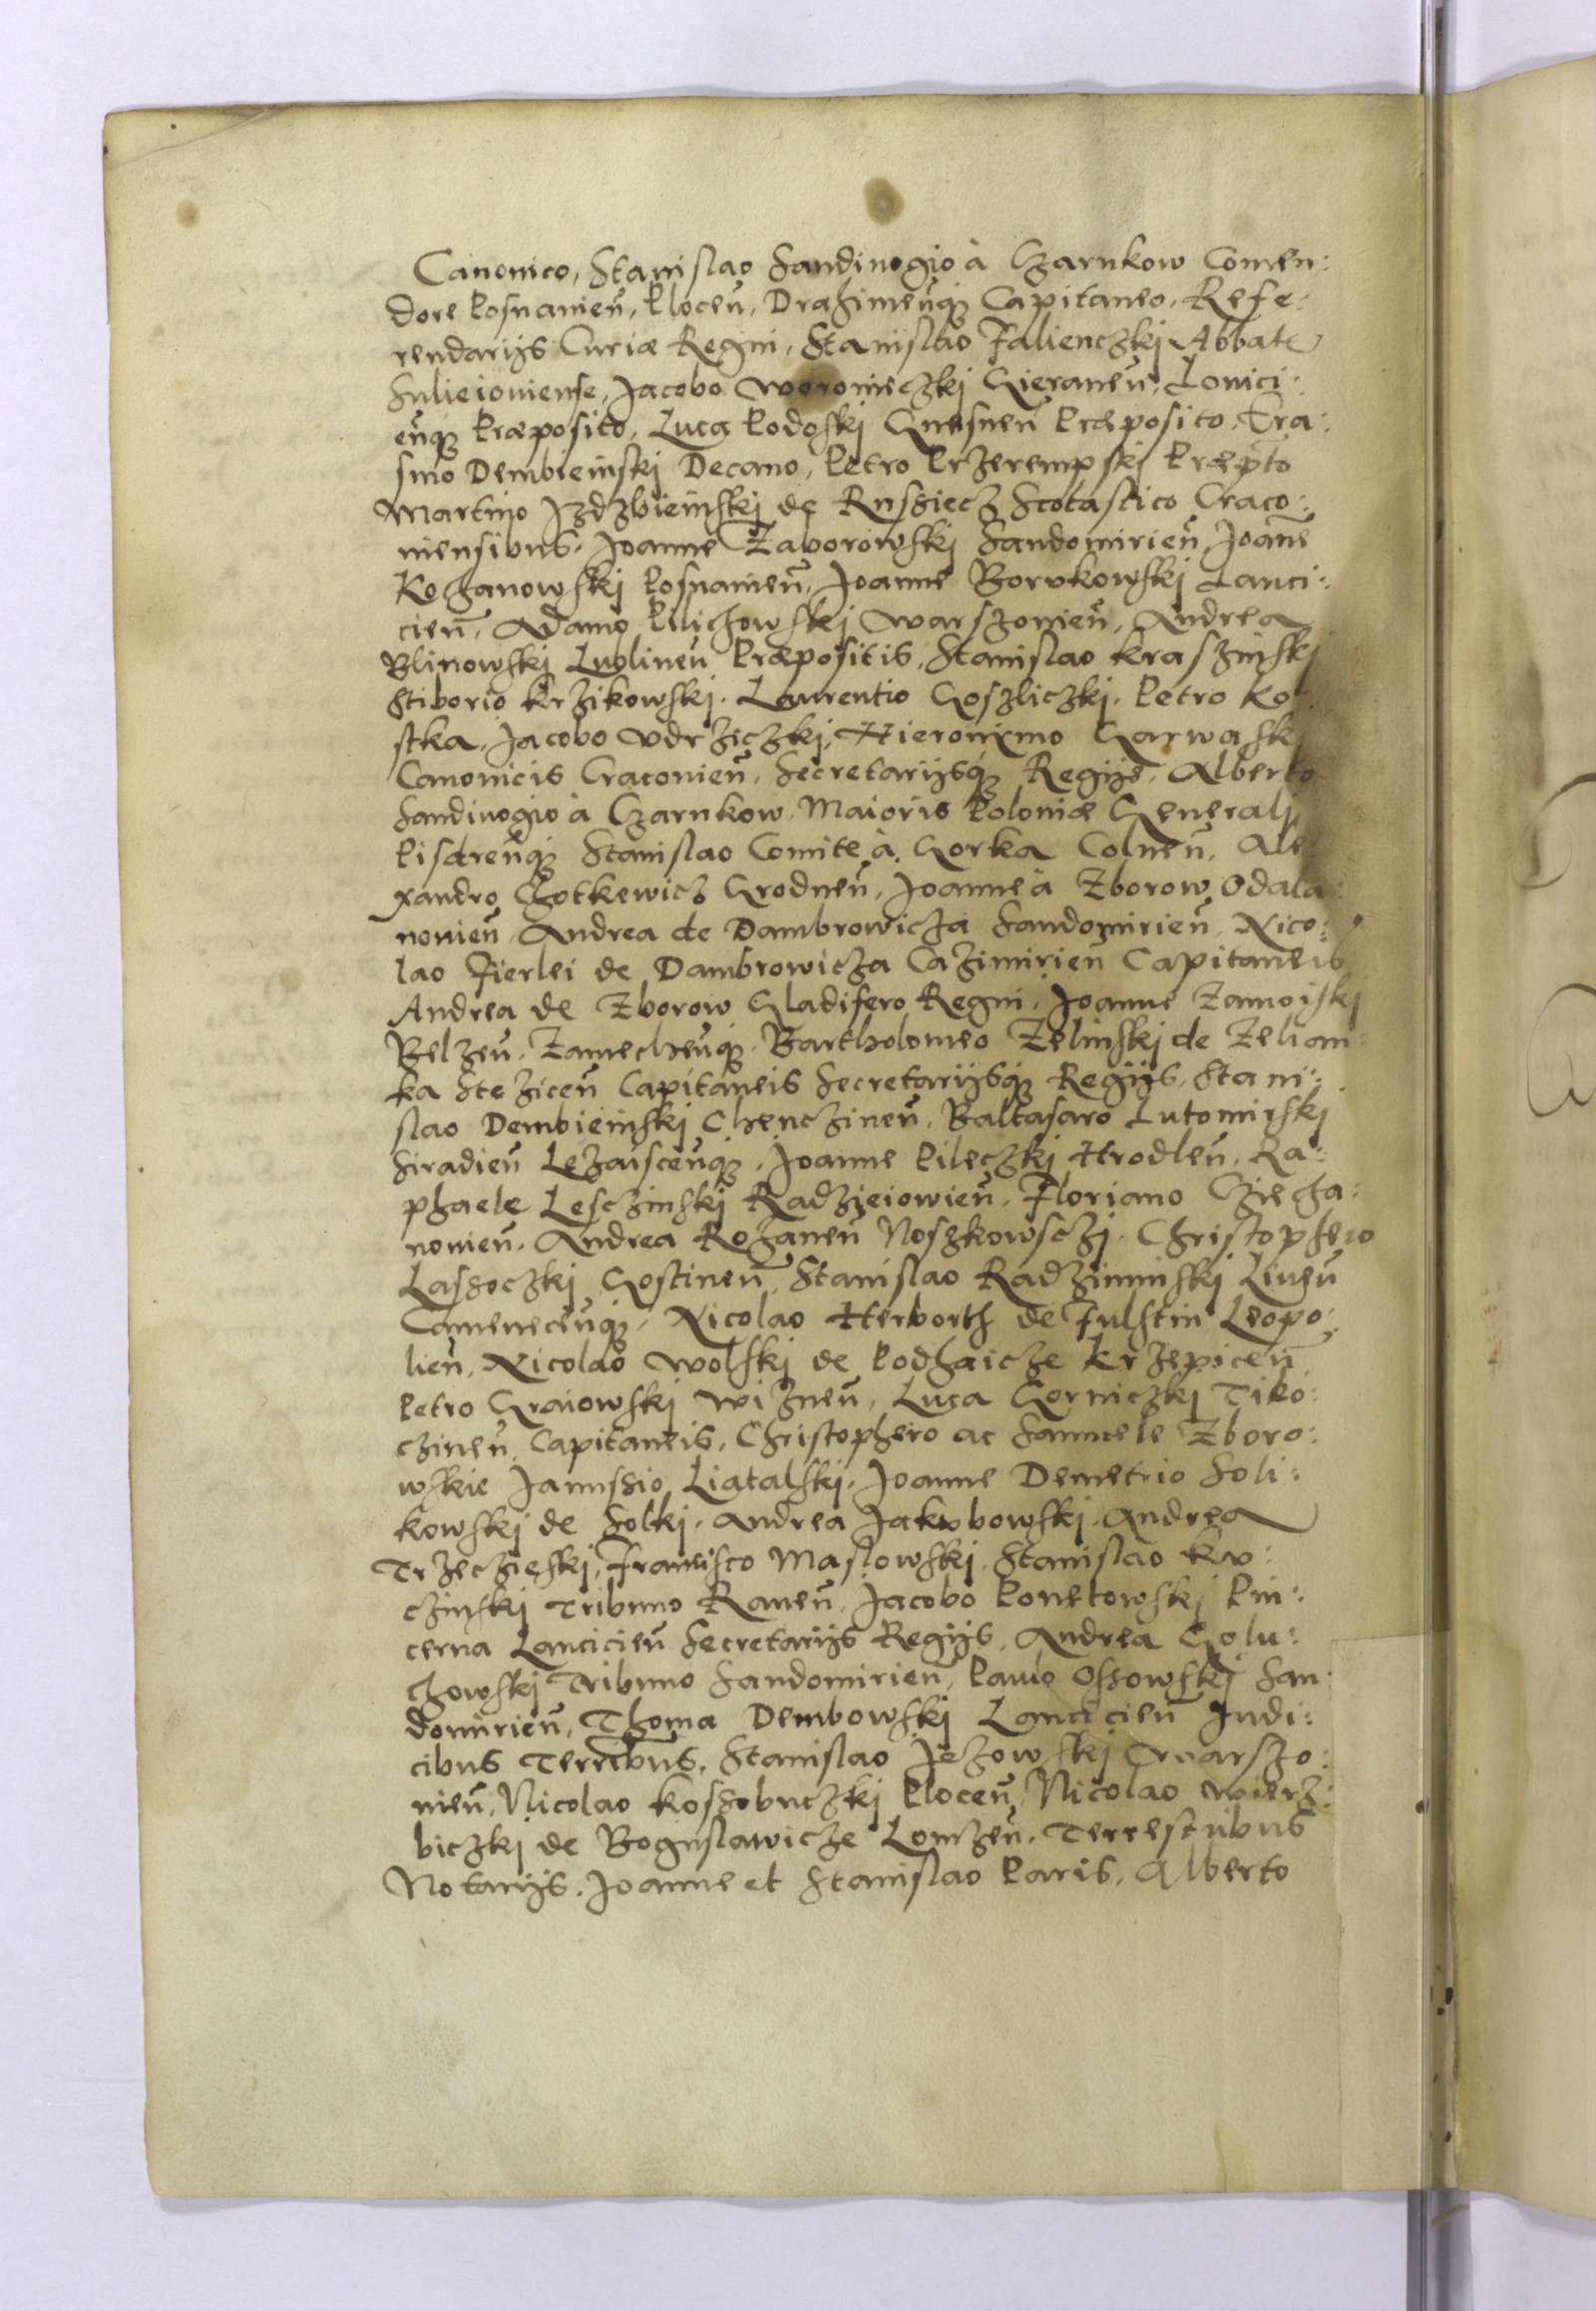 Canonico, Stanislao Sandivogio à Czarnkow Comen:
dore Posnanień, Plocen̄, Drahimen̄q3 Capitaneo, Refe:
rendarijs Curiæ Regni, Stanislao Falienczkj Abbate
Sulieioniense, Jacobo Woronieczkj Kieranen̄, Lovici:
en̄q3 Præposito, Luca Podoskj Gnesnen̄ Præposito, Era:
smo Dembienskj Decano, Petro Przerempskj Præpto
Martino Izdzbienskj de Russiecz Scolastico Craco:
niensibus, Joanne Zaborowskj Sandomirien̄, Joan̄e
Kochanowskj Posnanien̄, Joanne Borukowskj Lanci:
cien̄, Adamo Pilichowskj Warszouien̄, Andrea
Blinowskj Lublinen̄ Præpositis, Stanislao Kraszinskj
Stiborio Krzikowskj, Laurentio Goszliczkj, Petro Ko
stka, Jacobo Vdrziczkj, Hieronymo Garwaskj
Canonicis Cracouien̄, Secretarijsq3 Regijs, Alberto
Sandiuogio à Czarnkow, Maioris Poloniæ Generalj
Pisdren̄q3 Stanislao Comite à Gorka Colnen̄, Ale
xandro Chotkewicz Grodnen̄, Joanne à Zborow Odala:
nouien̄, Andrea de Dambrowicza Sandomirien̄, Nico:
lao Fierlei de Dambrowicza Cazimirien̄ Capitaneis
Andrea de Zborow Gladifero Regni, Joanne Zamoiskj
Belzen̄, Zamechen̄q3, Bartholomeo Zelinskj de Zelian:
ka Stezicen̄ Capitaneis Secretarijsq3 Regijs, Stani:
slao Dembieinskj Chenczinen̄, Baltasaro Lutomirskj
Siradien̄ Lezaiscen̄q3, Joanne Pileczkj Hrodlen̄, Ra:
phaele Lesczinskj Radzieiowien̄, Floriano Cziecha:
nouien̄, Andrea Rozanen̄ Noszkowsczj, Christophero
Lassoczkj Gostinen̄, Stanislao Radziminskj Liuen̄
Camenecen̄q3, Nicolao Herborth de Fulstin Leopo:
lien̄, Nicolao Wolskj de Podhaicze Krzepicen̄
Petro Graiowskj Wiznen̄, Luca Gorniczkj Tiko:
czinen̄ Capitaneis, Christophero ac Samuele Zboro:
wskie Janussio Ligatalskj, Joanne Demetrio Soli:
kowskj de Solkj, Andrea Jakubowskj, Andrea
Trzeczieskj, Francisco Maslowskj, Stanislao Ku:
czinskj Tribuno Rauen̄, Jacobo Ponetowskj Pin:
cerna Lancicien̄ Secretarijs Regijs, Andrea Golu:
chowskj Tribuno Sandomirien̄, Paulo Ossowskj San:
domirien̄, Thoma Dembowskj Lancicien̄ Judi:
cibus Terrēbus, Stanislao Jezowskj Warszo:
uien̄, Nicolao Kossobuczkj Plocen̄, Nicolao Wierz:
biczkj de Boguslawicze Lomzen̄, Terrestribus
Notarijs, Joanne et Stanislao Paris, Alberto